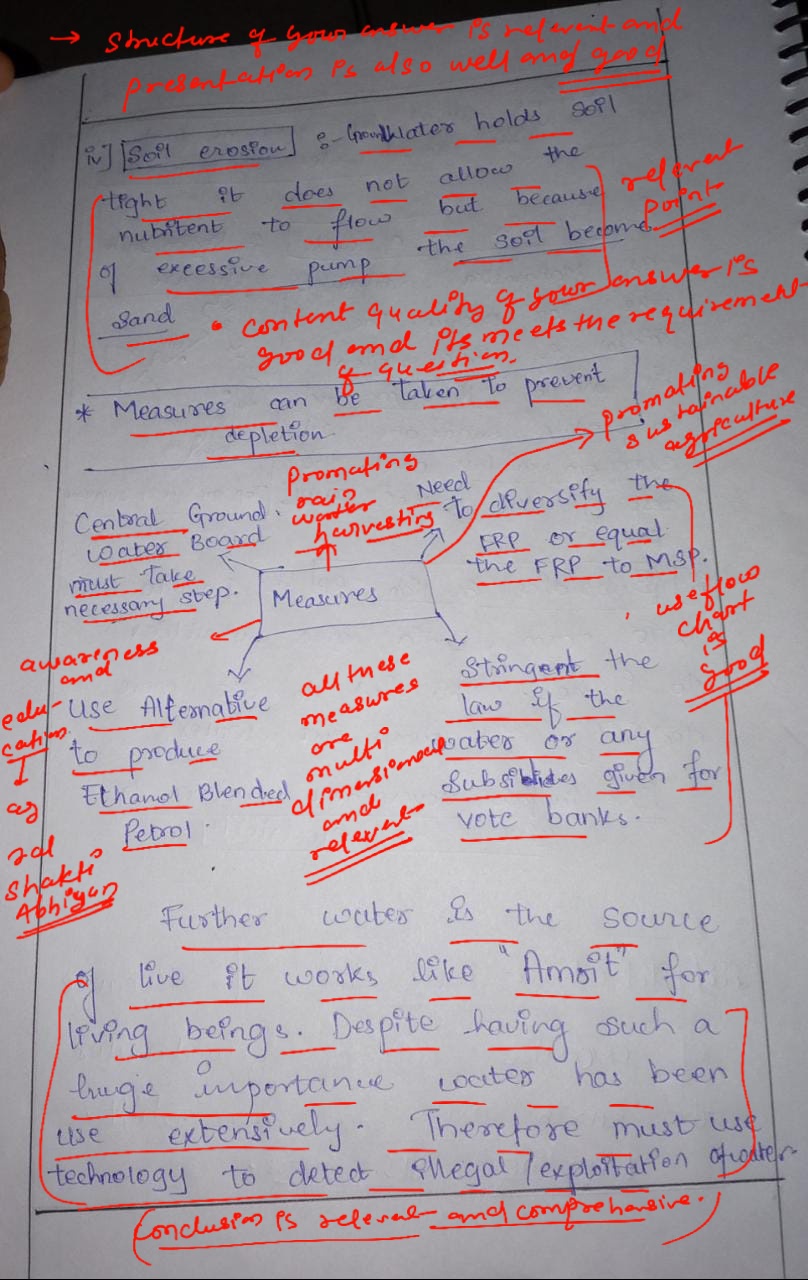 → Structure of your answer is relevent and
presentation is also well and good
iv] Soil erosion :- Groundwater holds soil
tight it does not allow the
nubitent to flow but because
of excessive pump the soil become
Sand
relevent
point
• content quality of your answer is
good and its meets the requirement
of question.
* Measures can be taken to prevent
depletion
promating
sustainable
agriculture
promating
rain
water
harvesting
Central Ground
Water Board
must take
necessary step.
Need
to diversify the
FRP or equal
the FRP to MSP.
Measures
use flow
chart
is
good
awareness
and
edu-
cation
as
Jal
Shakti
Abhiyan
Use Alternative
to produce
Ethanol Blended
Petrol.
all these
measures
are
multi
dimensional
and
relevent
Stringent the
law if the
water or any
Subsibides given for
vote banks.
Further water is the source
of live it works like "Amrit" for
living beings. Despite having such a
huge importance water has been
use extensively. Therefore must use
technology to detect illegal exploitation of water.
(Conclusion is relevent and comprehensive.)